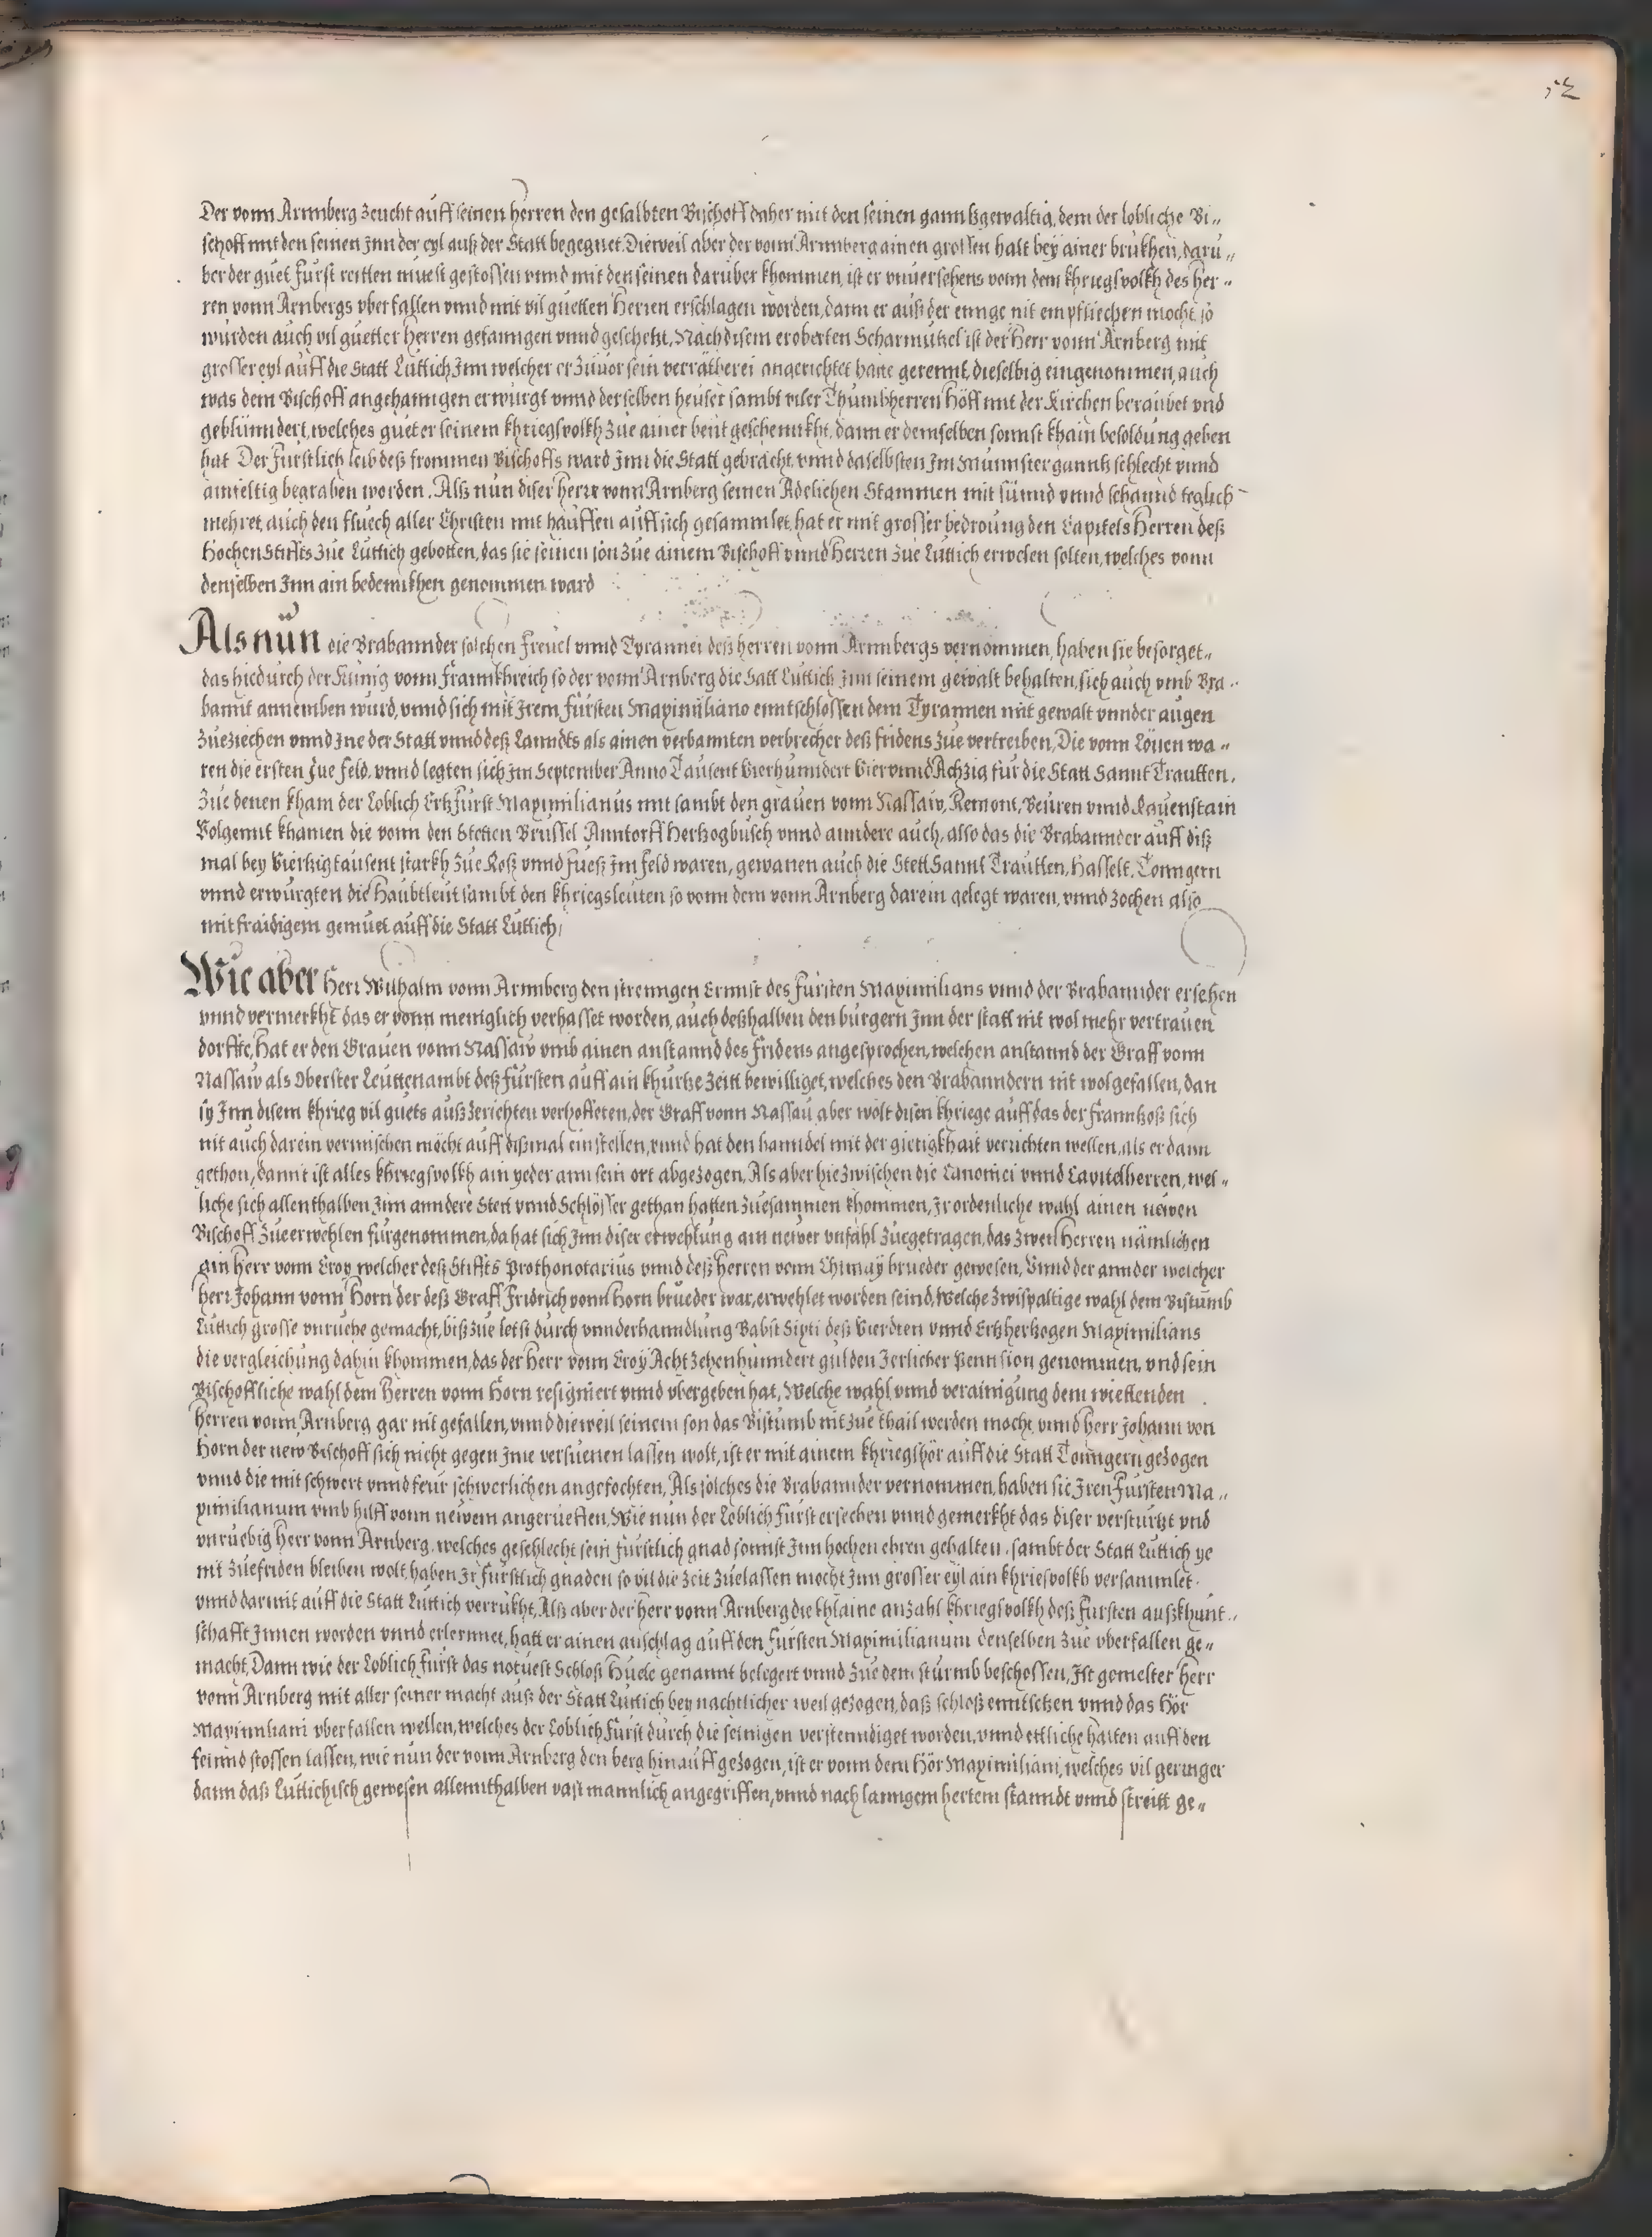 52
Der vonn Arnnberg zeucht auff seinen herren den gesalbten Bischoff daher mit den seinen ganntz gewaltig, dem der lobliche Bi„
schoff mit den seinen Jnn der eyl auß der Statt begegnet. Dieweil aber der vonn Arnnberg ainen grossen halt bey ainer brukhen, daru„
ber der guet Furst reitten muest gestossen vnnd mit den seinen daruber khommen, ist er vnuersehens vonn dem khriegsvolkh des Her„
ren vonn Arnbergs vberfallen vnnd mit vil guetten Herren erschlagen worden, dann er auß der ennge nit empfliechen mocht, so
wurden auch vil guetter Herren gefanngen vnnd geschetzt, Nach disem eroberten Scharmutzel ist der Herr vonn Arnberg mit
grosser eyl auff die Statt Luttich Jnn welcher er zuuor sein verrätherei angerichtet hatte gerennt, dieselbig eingenommen, auch
was dem Bischoff angehanngen erwurgt vnnd derselben heuser sambt viler Thumbherren Höff mit der Kirchen beraubet vnd
geblunndert, welches gueter seinem khriegsvolkh zue ainer beut geschennkht, dann er demselben sonnst khain besoldung geben
hat. Der Furstlich leib deß frommen Bischoffs ward Jnn die Statt gebracht, vnnd daselbsten Jm Munnster ganntz schlecht vnnd
ainfeltig begraben worden. Alß nun diser herr vonn Arnberg seinen Adelichen Stammen mit sünnd vnnd schannd teglich
mehret, auch den fluech aller Christen mit hauffen auff sich gesammlet, hat er mit grosser bedroung den Capitels Herren deß
Hochen Stiffts zue Luttich gebotten, das sie seinen son zue ainem Bischoff vnnd Herren zue Luttich erwelen solten, welches vonn
denselben Jnn ain bedennkhen genommen ward
Als nun die Brabannder solchen Freuel vnnd Tyrannei deß herren vonn Arnnbergs vernommen, haben sie besorget„
das hiedurch der Kunig vonn Frannkhreich so der vonn Arnberg die Satt Luttich Jnn seinem gewalt behalten, sich auch vmb Bra„
bannt annemben wurd, vnnd sich mit Jrem Fürsten Maximiliano enntschlossen dem Tyrannen mit gewalt vnnder augen
zueziechen vnnd Jne der Statt vnnd deß Lanndts als ainen verbannten verbrecher deß fridens zue vertreiben, Die vonn Löuen wa„
ren die ersten zue feld, vnnd legten sich Jm September Anno Tausent Vierhunndert Vier vnnd Achzig für die Statt Sannt Trautten,
Zue denen kham der Loblich Ertzfurst Maximilianus mit sambt den grauen vonn Nassaw, Remont, Beuren vnnd Rauenstain
Volgennt khamen die vonn den Stetten Brussel Anntorff Hertzogbusch vnnd anndere auch, also das die Brabannder auff diß
mal bey Viertzig tausent starkh zue Roß vnnd Fueß Jm feld waren, gewanen auch die Stett Sannt Trautten, Hasselt, Tonngern
vnnd erwurgten die Haubtleut sambt den khriegsleuten so vonn dem vonn Arnberg darein gelegt waren, vnnd zochen also
mit fraidigem gemuet auff die Statt Luttich,
Wie aber Herr Wilhalm vonn Arnnberg den strenngen Ernnst des fursten Maximilians vnnd der Brabannder ersehen
vnnd vermerkht das er vonn meniglich verhasset worden, auch deßhalben den burgern Jnn der statt nit wol mehr vertrauen
dorffte, Hat er den Grauen vonn Nassaw vmb ainen anstannd des fridens angesprochen, welchen anstannd der Graff vonn
Nassaw als Oberster Leuttenambt deß fursten auff ain khurtze zeitt bewilliget, welches den Brabanndern nit wolgefallen, dan
sy Jnn disem khrieg vil guets auß zerichten verhoffeten, der Graff vonn Nassau aber wolt disen khriege auff das der Franntzoß sich
nit auch darein vermischen möcht auff dißmal einstellen, vnnd hat den hanndel mit der gietigkhait verrichten wellen, als er dann
gethon, damit ist alles khriegsvolkh ain yeder ann sein ort abgezogen, Als aber hiezwischen die Canonici vnnd Capitelherren, wel„
liche sich allenthalben Jnn anndere Stett vnnd Schlösser gethan hatten zuesammen khommen, Jr ordenliche wahl ainen newen
Bischoff zue erwehlen furgenommen, da hat sich Jnn diser erwehlung ain newer vnfahl zuegetragen, das zwen Herren nämlichen
ain Herr vonn Croy welcher deß Stiffts Prothonotarius vnnd deß Herren vonn Chimay brueder gewesen, Vnnd der annder welcher
herr Johann vonn Horn der deß Graff Fridrich vonn Horn brueder war, erwehlet worden seind, Welche zwispaltige wahl dem Bistumb
Luttich grosse vnruehe gemacht, biß zue letst durch vnnderhanndlung Babst Sixti deß Vierdten vnnd Ertzhertzogen Maximilians
die vergleichung dahin khommen, das der Herr vonn Croy Acht zehen hunndert gulden Jerlicher Pennsion genommen, vnd sein
Bischoffliche wahl dem Herren vonn Horn resigniert vnnd vbergeben hat, Welche wahl vnnd verainigung dem wiettenden
Herren vonn Arnberg gar nit gefallen, vnnd dieweil seinem son das Bistumb nit zue thail werden mocht, vnnd herr Johann von
Horn der new Bischoff sich nicht gegen Jme versuenen lassen wolt, ist er mit ainem khriegshör auff die Statt Tonngern gezogen
vnnd die mit schwert vnnd feur schwerlichen angefochten, Als solches die Brabannder vernommen, haben sie Jren Fursten Ma„
ximilianum vmb hilff vonn newem angerueffen, Wie nun der Loblich Fürst ersechen vnnd gemerkht das diser versturtzt vnd
vnruebig Herr vonn Arnberg, welches geschlecht sein fürstlich gnad sonnst Jnn hochen ehren gehalten, sambt der Statt Luttich ye
nit zuefriden bleiben wolt, haben Jr furstlich gnaden so vil die zeit zuelassen mocht Jnn grosser eyl ain khriesvolkh versammlet
vnnd darmit auff die Statt Luttich verrukht, Alß aber der herr vonn Arnberg die khlaine anzahl khriegsvolkh deß Fursten außkhunt„
schafft Jnnen worden vnnd erlernnet, hatt er ainen anschlag auff den fursten Maximilianum denselben zue vberfallen ge„
macht, Dann wie der Loblich Furst das notuest Schlosß Huele genannt belegert vnnd zue dem sturmb beschossen, Jst gemelter Herr
vonn Arnberg mit aller seiner macht auß der Statt Luttich bey nachtlicher weil gezogen, daß schloß enntsetzen vnnd das Hör
Maximiliani vberfallen wellen, welches der Loblich Furst durch die seinigen verstenndiget worden, vnnd ettliche halten auff den
feinnd stossen lassen, wie nun der vonn Arnberg den berg hinauff gezogen, ist er vonn dem Hör Maximiliani, welches vil geringer
dann daß Luttichisch gewesen allennthalben vast mannlich angegriffen, vnnd nach lanngem hertem stanndt vnnd streitt ge„